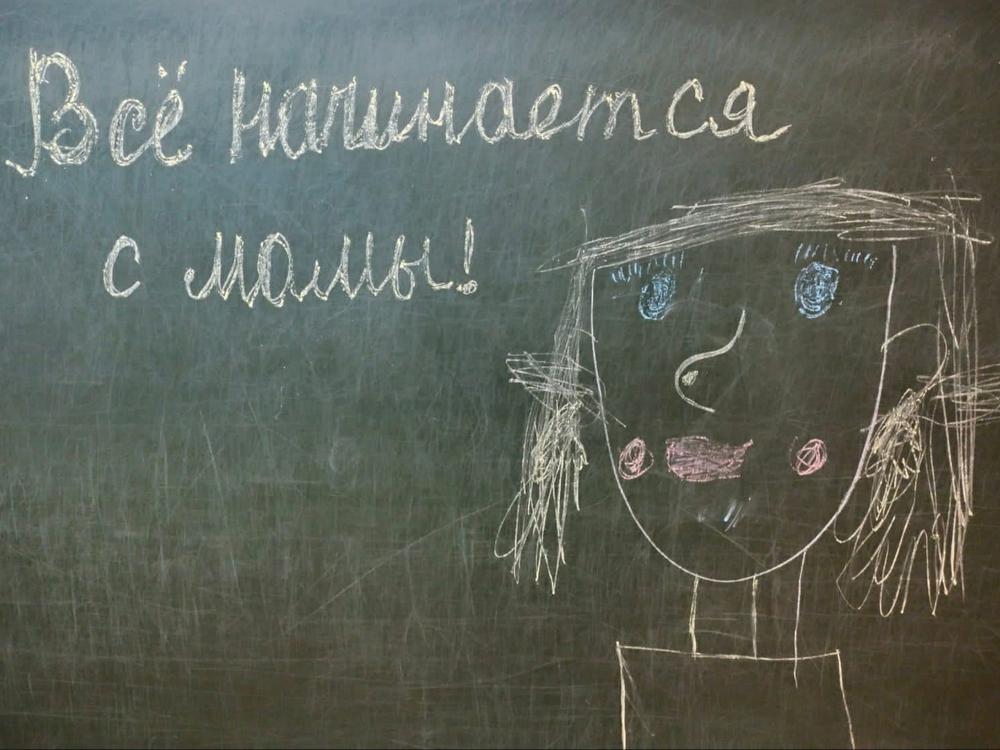 Всё начинается
с мамы!